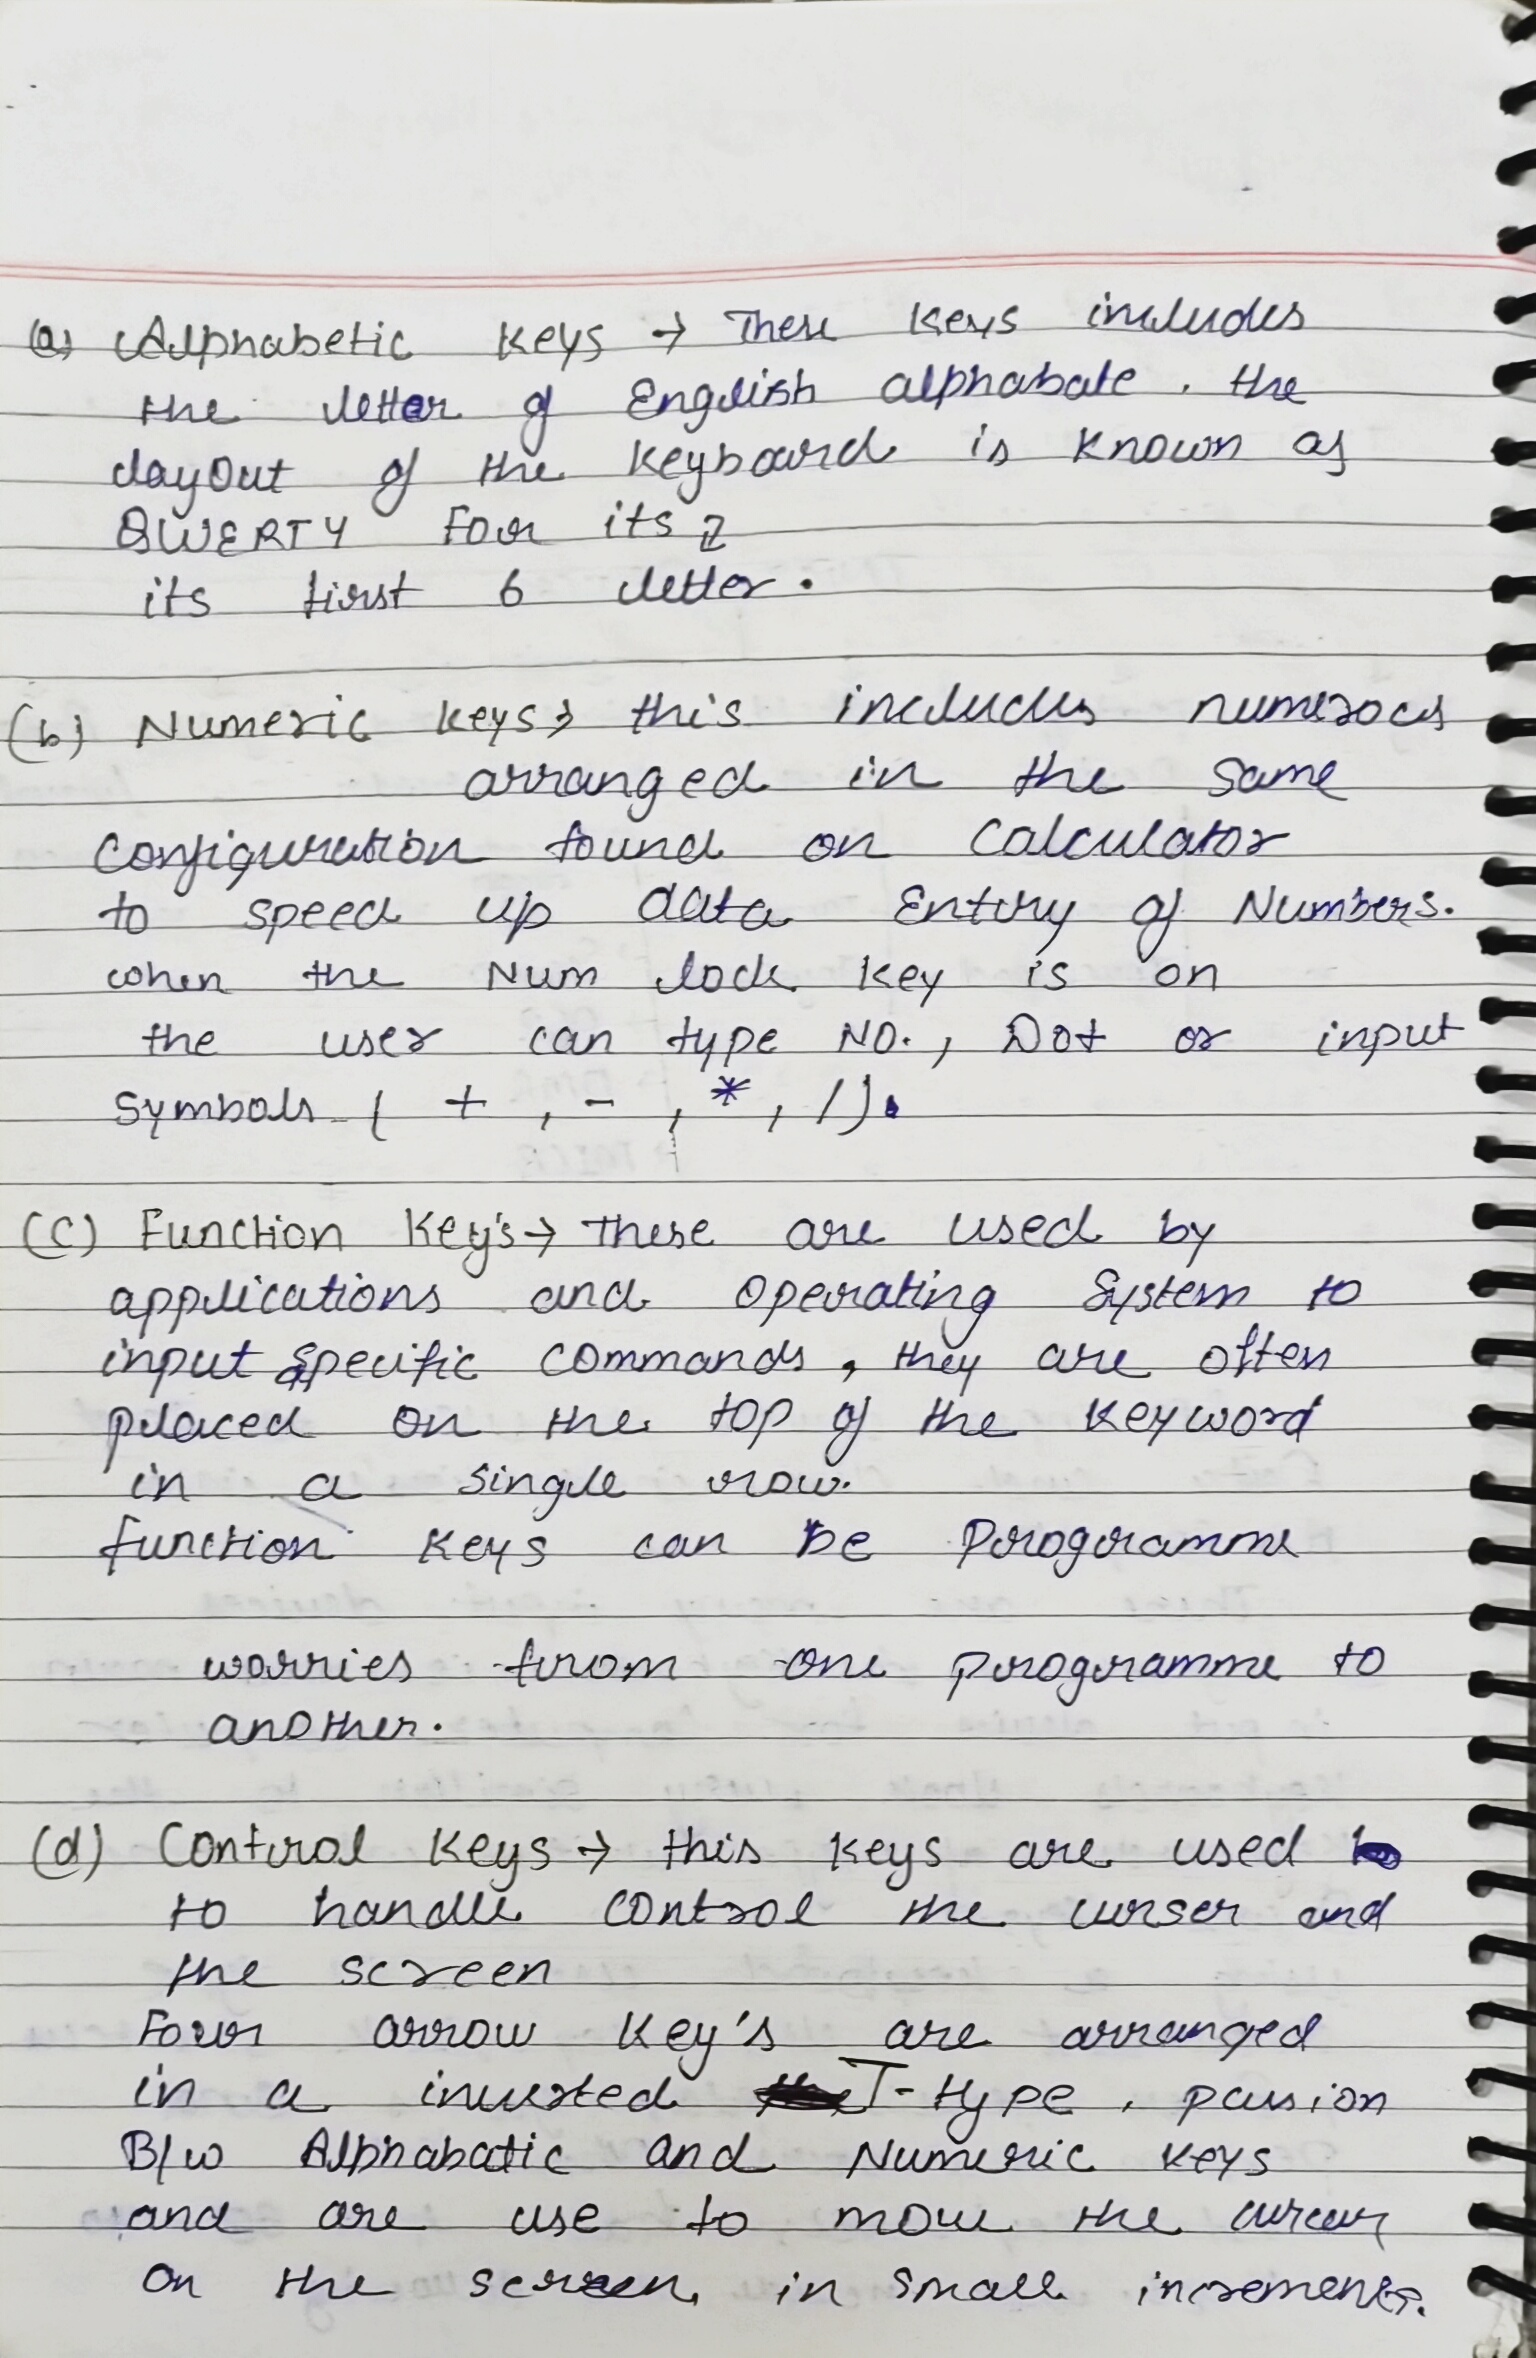 (a) Alphabetic Keys → These Keys includes
the letter of English alphabate. the
layout of the Keyboard is Known as
QWERTY For its
its first 6 letter.
(b) Numeric Keys → this includes
arranged in the same
configuration found on Calculator
to speed up data Entry of Numbers.
when the Num lock Key is on
the user can type NO., Dot or input
Symbols ( + , - , * , /).
(C) Function Key's → These are used by
applications and Operating System to
input specific commands, they are often
placed on the top of the Keyword
in a single row.
function Keys can be Programme
worries from one programme to
another.
(d) Control Keys → this Keys are used
to handle control the curser and
the screen
Four arrow Key's are arranged
in a inverted T-type,
B/w Alphabatic and Numeric Keys
and are use to move the
on the screen in small increments.